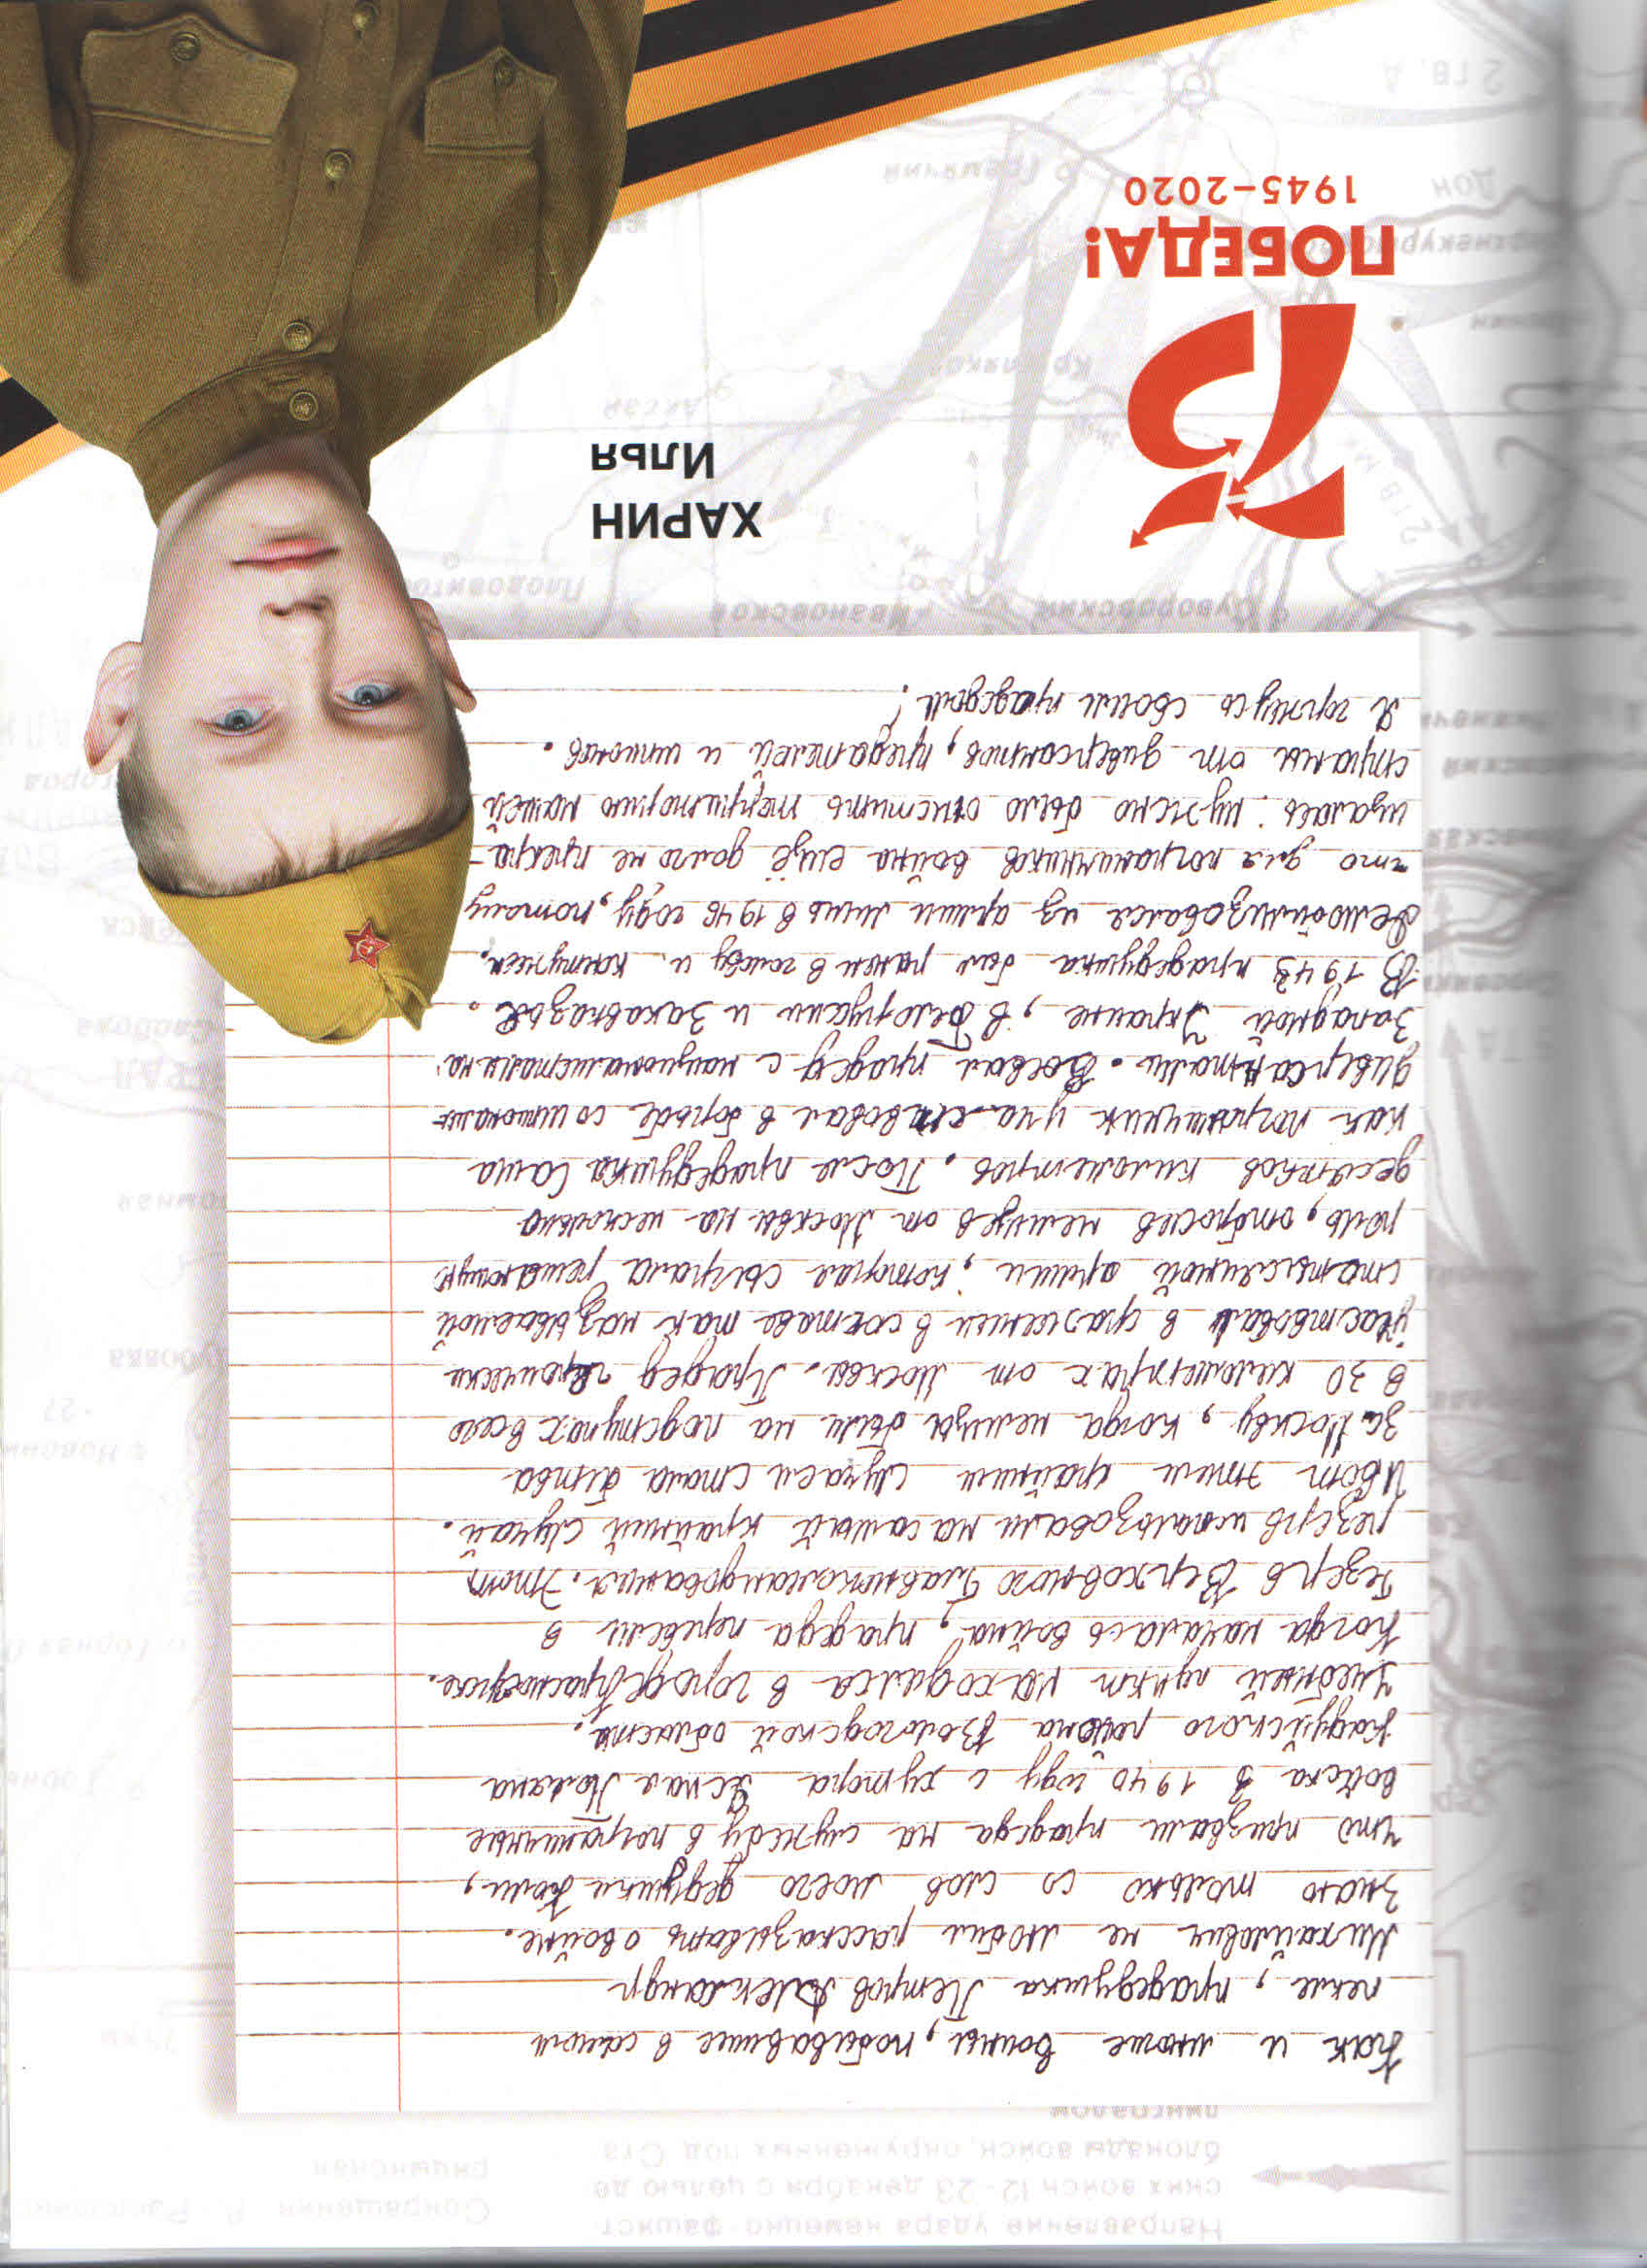 Направление удара немецко-фашист
ских войск 12-23 декабря с целью де
блокады войск, окруженных под Ста
линградом
Сокращения
Как и многие воины, побывавшие в самом
пекле, прадедушка Петров Александр
Михайлович не любил рассказывать о войне.
Знаю только со слов моего дедушки Коли,
что призвали прадеда на службу в пограничные
войска в 1940 году с хутора Ясная Поляна
Кадуйского района Вологодской области.
Учебный пункт находился в городе Красногорске.
Когда началась война, прадеда перевели в
Резерв Верховного Главнокомандования. Этот
резерв использовали на самый крайний случай.
И вот этим крайним случаем стала битва
за Москву, когда немцы были на подступах всего
в 30 километрах от Москвы. Прадед героически
участвовал в сражении в составе так называемой
стотысячной армии, которая сыграла решающую
роль, отбросив немцев от Москвы на несколько
десятков километров. После прадедушка Саша
как пограничник участвовал в борьбе со шпионами-
диверсантами. Воевал прадед с националистами на
Западной Украине, в Белоруссии и Закавказье.
В 1943 прадедушка был ранен в голову и контужен.
Демобилизовался из армии лишь в 1946 году, потому
что для пограничников война ещё долго не прекра-
щалась: нужно было очистить территорию нашей
страны от диверсантов, предателей и шпионов.
Я горжусь своим прадедом!
Суворовский
Ивановское
Плодовито
75
ХАРИН
Илья
Аксай
ПОБЕДА!
1945–2020
Дон
Гремячий
2 гв. А